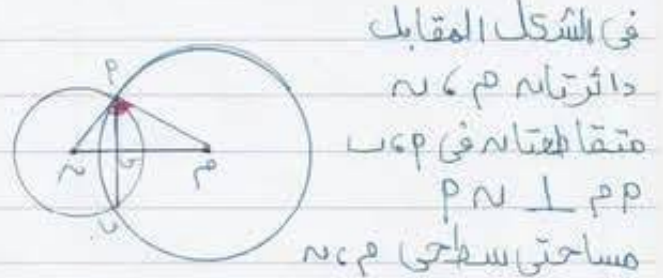 فى الشكل المقابل
دائرتان م ، ن
متقاطعتان فى م ، ب
م م ⊥ ن م
مساحتى سطحى م ، ن
م
ن
م
ب